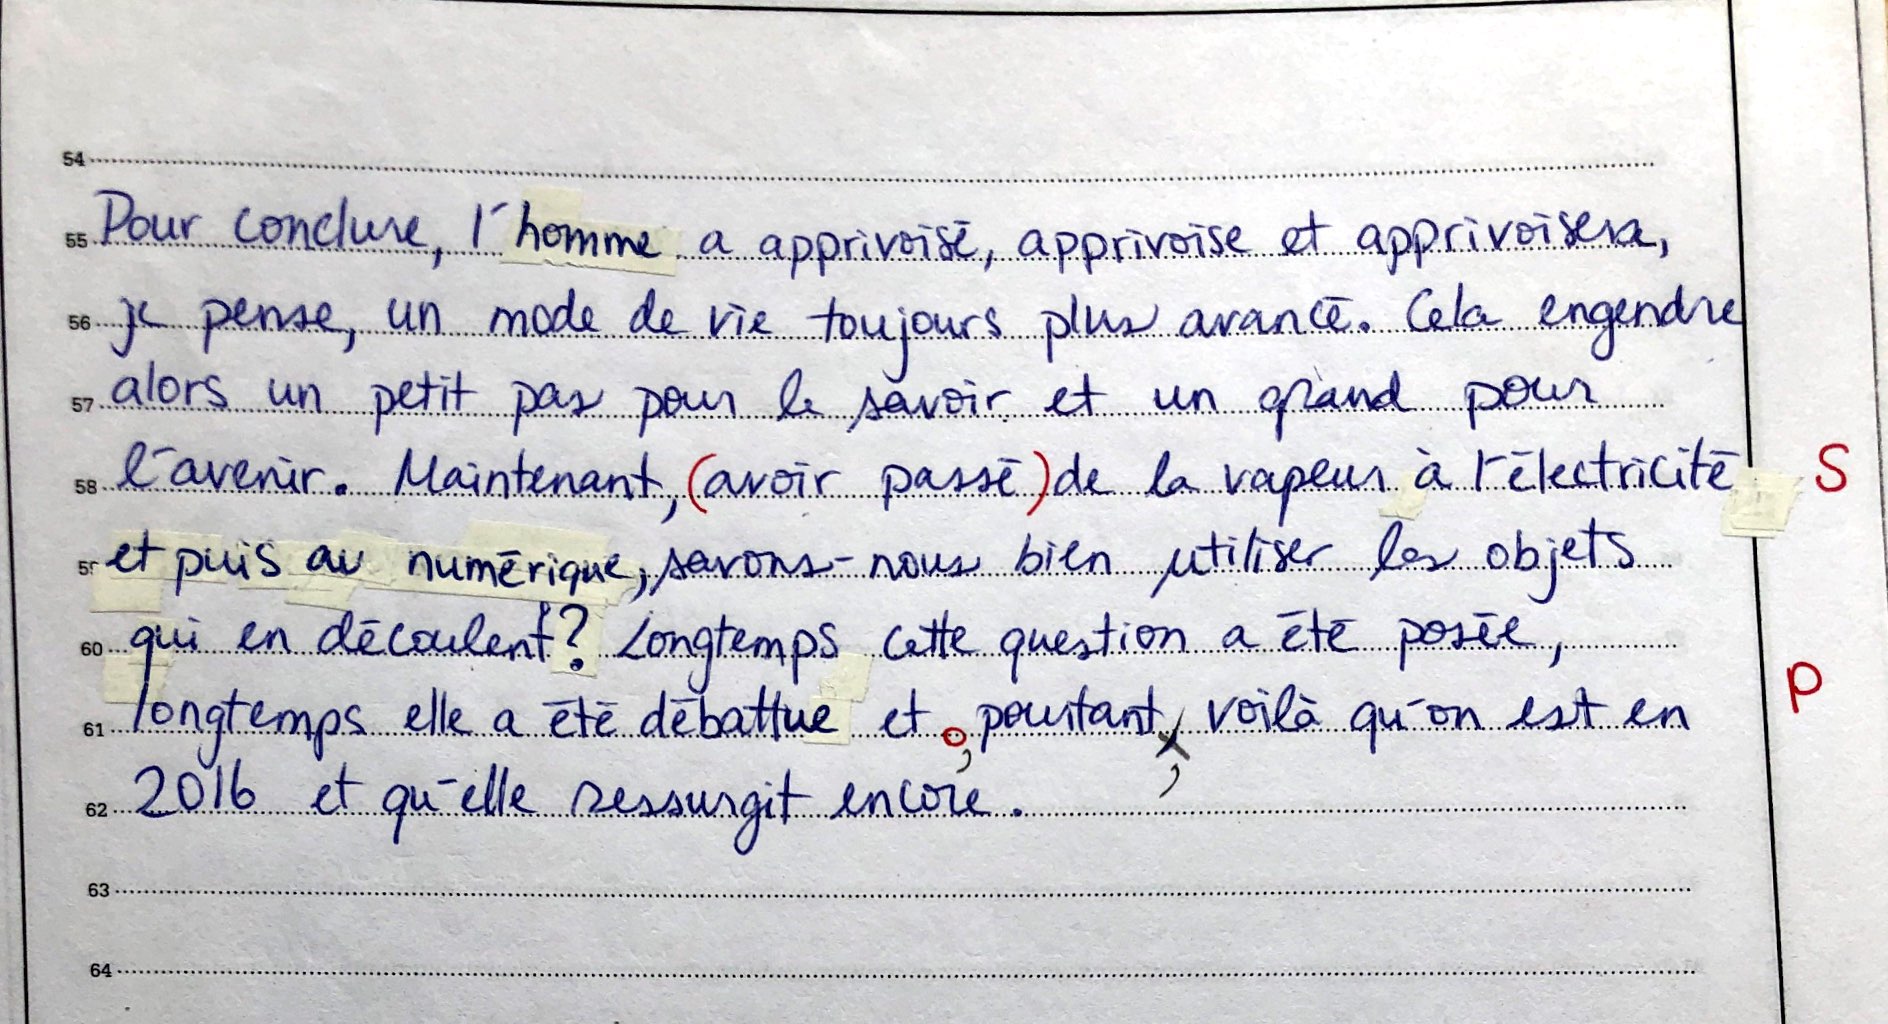 54
55 Pour conclure, l'homme a apprivoisé, apprivoise et apprivoisera,
56 je pense, un mode de vie toujours plus avancé. Cela engendre
57 alors un petit pas pour le savoir et un grand pour
58 l'avenir. Maintenant, (avoir passé) de la vapeur à l'électricité S
59 et puis au numérique, savons-nous bien utiliser les objets
60 qui en découlent? Longtemps cette question a été posée,
P
61 longtemps elle a été débattue et, pourtant, voilà qu'on est en
62 2016 et qu'elle ressurgit encore.
63
64